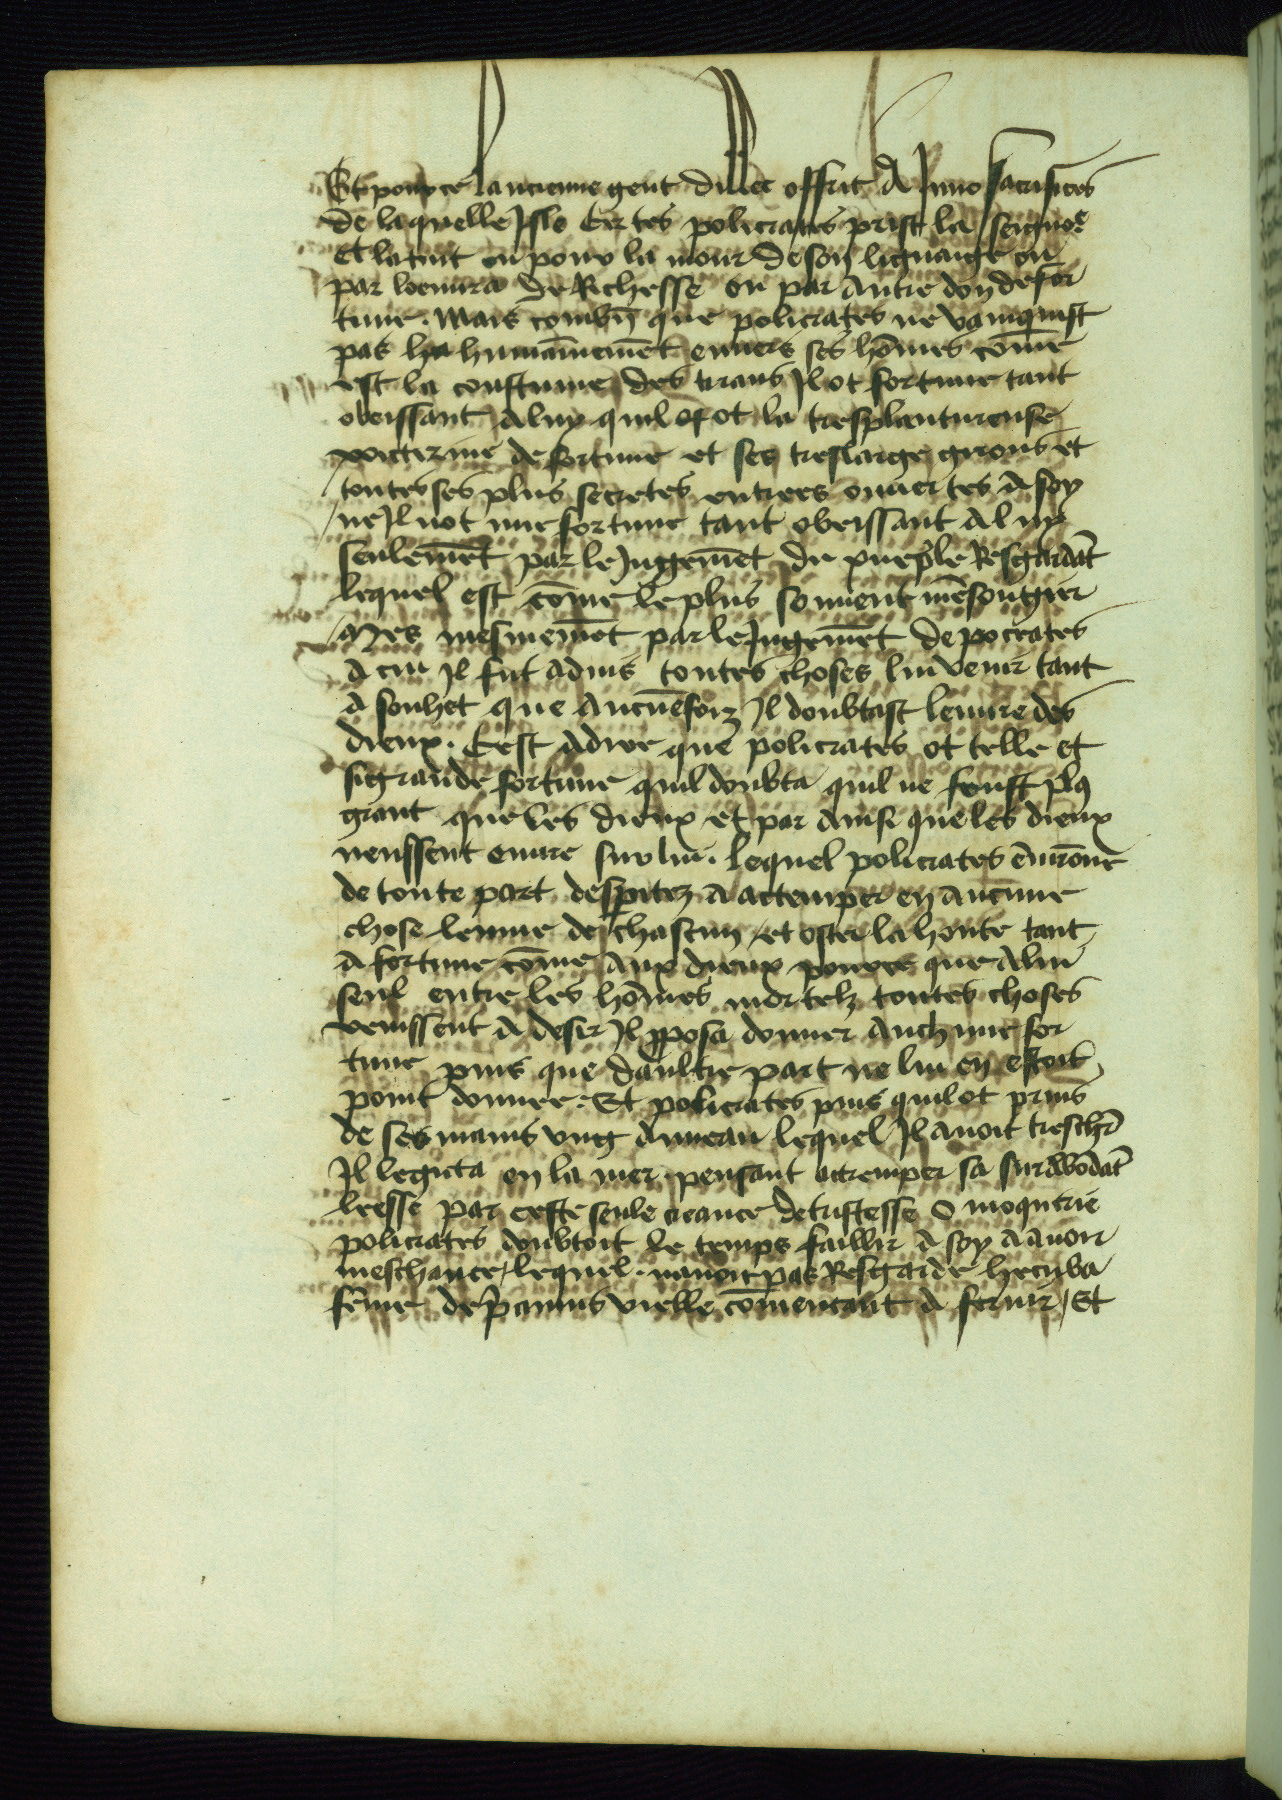 Et pource lancienne gent dillec offrit A Juno sacrifices
de laquelle Jsle Certes policrates prist la seignor
Et la tint ou pour la mour de son lignaige ou
par loeuura de Richesse ou par Autre don de for
tune. Mais combñ que policrates ne vainquist
pas ha humainem̄et enuers ses hōmes cōme
est la coustume des tirans Jl ot fortune tant
obeissant A luy quil ot la tresplantureuse
poictrine de fortune et ses treslarge girons et
toutes ses plus secretes entrees ouuertes A soy
ne Jl not une fortune tant obeissant A luy
seulem̄et par le Jugem̄et du pueple Resgardāt
lequel est cōme le plus souuent mēsongier
Mes mesmem̄et par le Jugem̄et de pocrates
A cui Jl fut aduis toutes choses lui venir tant
A souhet que Aucunēfoiz Jl doubtast lenuie des
dieux. Cest Adire que policrates ot telle et
si grande fortune quil doubta quil ne feust plꝯ
grant que les dieux et par Ainsi que les dieux
neussent enuie sur lui. lequel policrates ēuirōne
de toute part despitez A actemper en Aucune
chose lenuie de chascun et oster la honte tant
A fortune cōme Aux dieux pource que A lui
seul entre les hōmes mortelz toutes choses
venissent A desir Jl ꝓposa donner Auchune for
tune puis que daultre part ne lui en estoit
point donnee. Et policrates puis quil ot prins
de ses mains vng Anneau lequel Jl Auoit treschr̄
Jl le gicta en la mer. pensant Atremper sa surabōdāt
leesse par ceste seule creance de tristesse O moquerie
policrates doubtoit le temps faillir A soy A Auoir
meschance, lequel. nauoit pas Resgarde hecuba
fēme de p̄iamus vielle cōmencant A seruir, Et